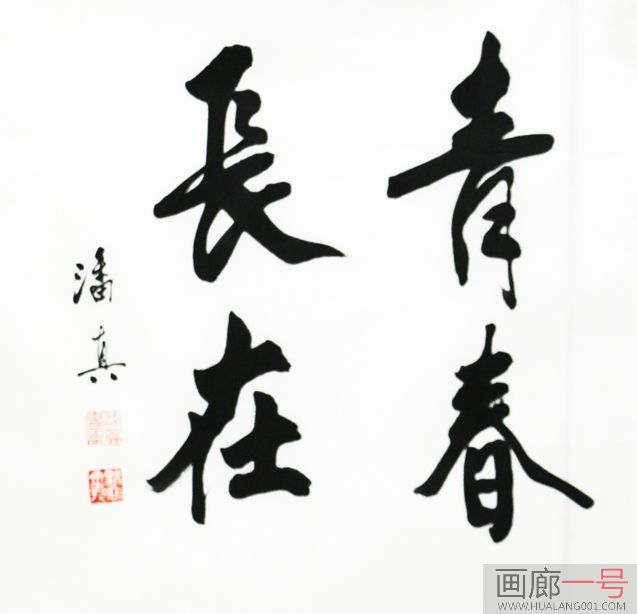 青春
長在
潘真
画廊一号
WWW.HUALANG001.COM